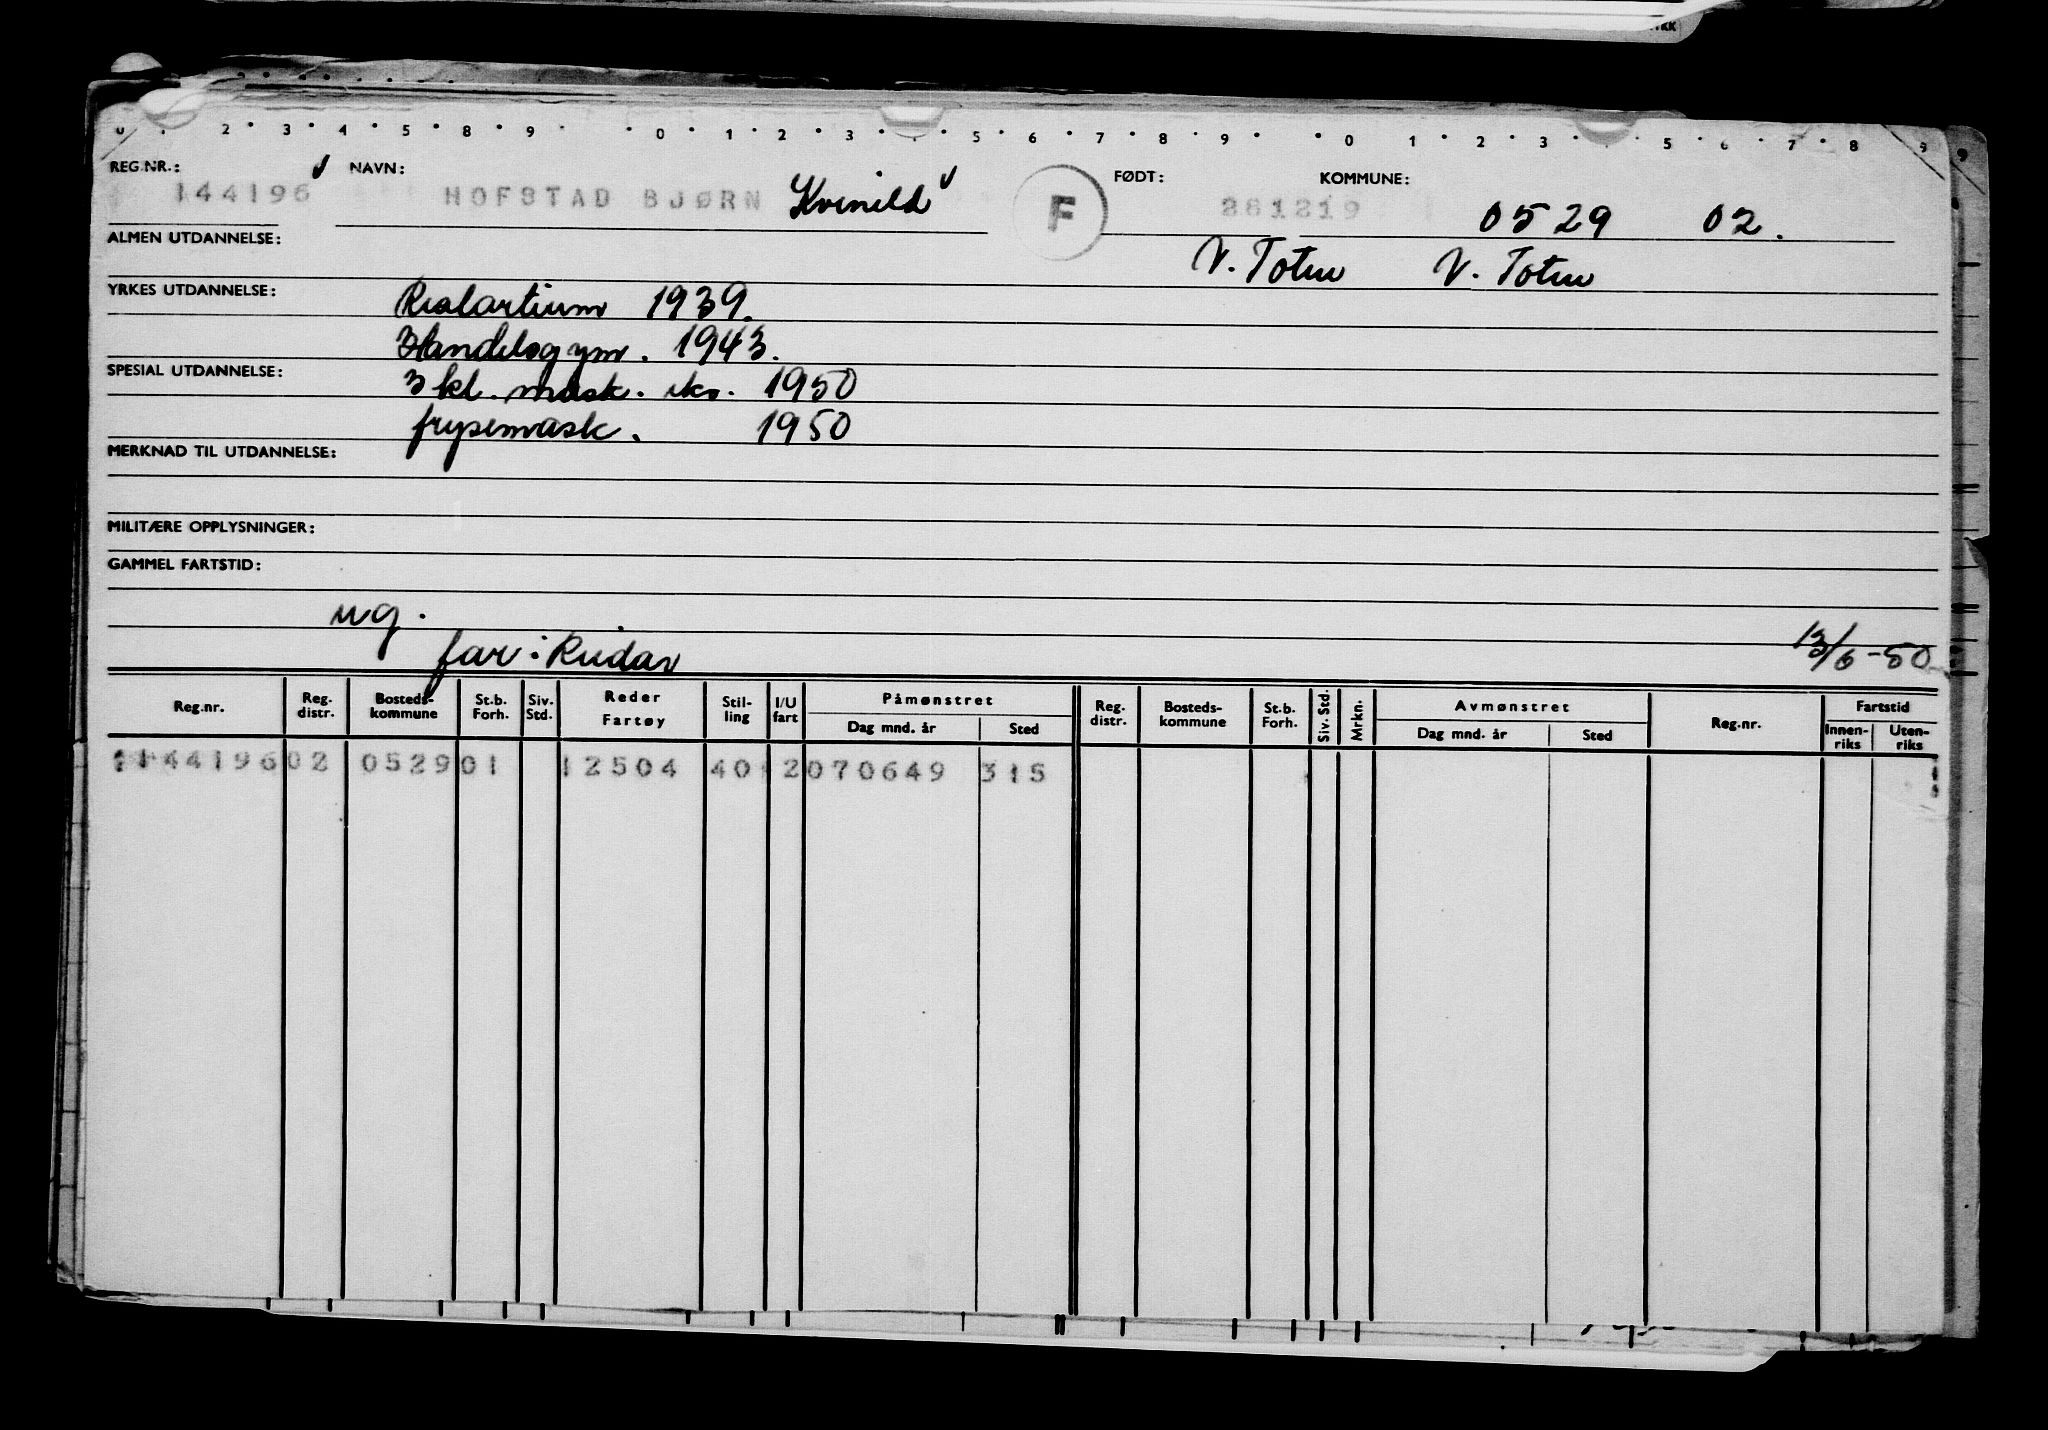 0 2 3 4 5 8 9 0 1 2 3 5 6 7 8 9 0 1 2 3 5 6 7 8 9
REG.NR.: NAVN: FØDT: KOMMUNE:
144196 HOFSTAD BJØRN Kvenild F 281219 0529 02.
ALMEN UTDANNELSE: V. Toten V. Toten
YRKES UTDANNELSE: Realartium 1939.
Handelsgym. 1943.
SPESIAL UTDANNELSE: 3 kl. mask. eks. 1950
frysemask. 1950
MERKNAD TIL UTDANNELSE:
MILITÆRE OPPLYSNINGER:
GAMMEL FARTSTID:
ug.
far: Reidar 13/6-50
Reg.nr. Reg. distr. Bosteds-kommune St.b. Forh. Siv. Std. Reder Fartøy Stil-ling I/U fart Påmønstret Dag mnd. år Sted Reg. distr. Bosteds-kommune St.b. Forh. Siv. Std. Mrkn. Avmønstret Dag mnd. år Sted Reg.nr. Fartstid Innen-riks Uten-riks
144196 02 0529 01 12504 40 2 070649 315